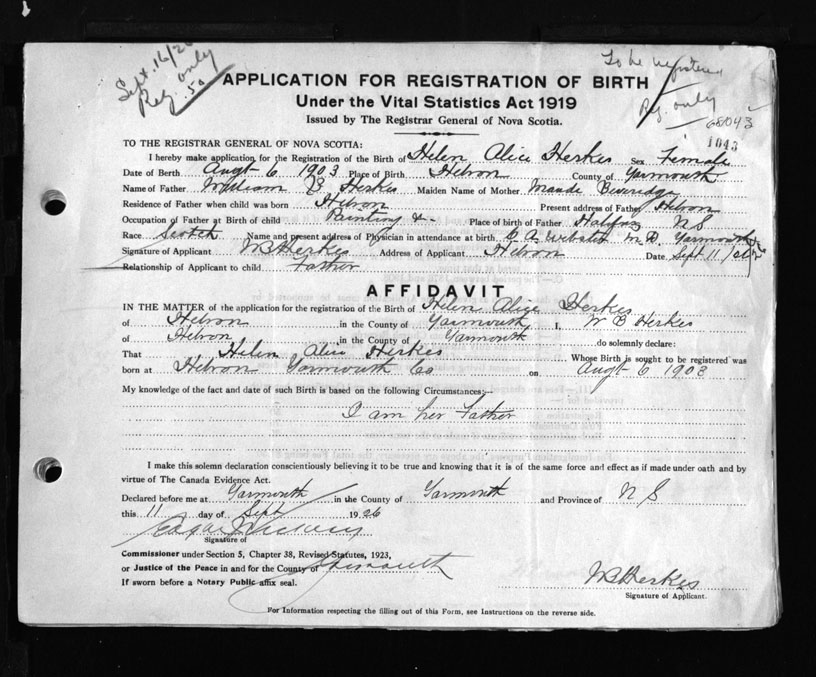 Sept. 16/26
Reg. only
.50
To be registered
Reg. only
68043
1043
APPLICATION FOR REGISTRATION OF BIRTH
Under the Vital Statistics Act 1919
Issued by The Registrar General of Nova Scotia.
TO THE REGISTRAR GENERAL OF NOVA SCOTIA:
I hereby make application for the Registration of the Birth of Helen Alice Herkes Sex Female
Date of Berth Augt 6 1903 Place of Birth Hebron County of Yarmouth
Name of Father William B Herkes Maiden Name of Mother Maude Beveridge
Residence of Father when child was born Hebron Present address of Father Hebron
Occupation of Father at Birth of child Painting &- Place of birth of Father Halifax N S
Race Scotch Name and present address of Physician in attendance at birth C A Webster M D. Yarmouth
Signature of Applicant W B Herkes Address of Applicant Hebron Date Sept 11/26
Relationship of Applicant to child Father
AFFIDAVIT
IN THE MATTER of the application for the registration of the Birth of Helen Alice Herkes
of Hebron in the County of Yarmouth I, W B Herkes
of Hebron in the County of Yarmouth do solemnly declare:
That Helen Alice Herkes Whose Birth is sought to be registered was
born at Hebron Yarmouth Co on Augt 6 1903
My knowledge of the fact and date of such Birth is based on the following Circumstances:—
I am her Father
I make this solemn declaration conscientiously believing it to be true and knowing that it is of the same force and effect as if made under oath and by
virtue of The Canada Evidence Act.
Declared before me at Yarmouth in the County of Yarmouth and Province of N S
this 11 day of Sept 1926
Signature of
Commissioner under Section 5, Chapter 38, Revised Statutes, 1923,
or Justice of the Peace in and for the County of Yarmouth
If sworn before a Notary Public affix seal.
W B Herkes
Signature of Applicant.
For Information respecting the filling out of this Form, see Instructions on the reverse side.